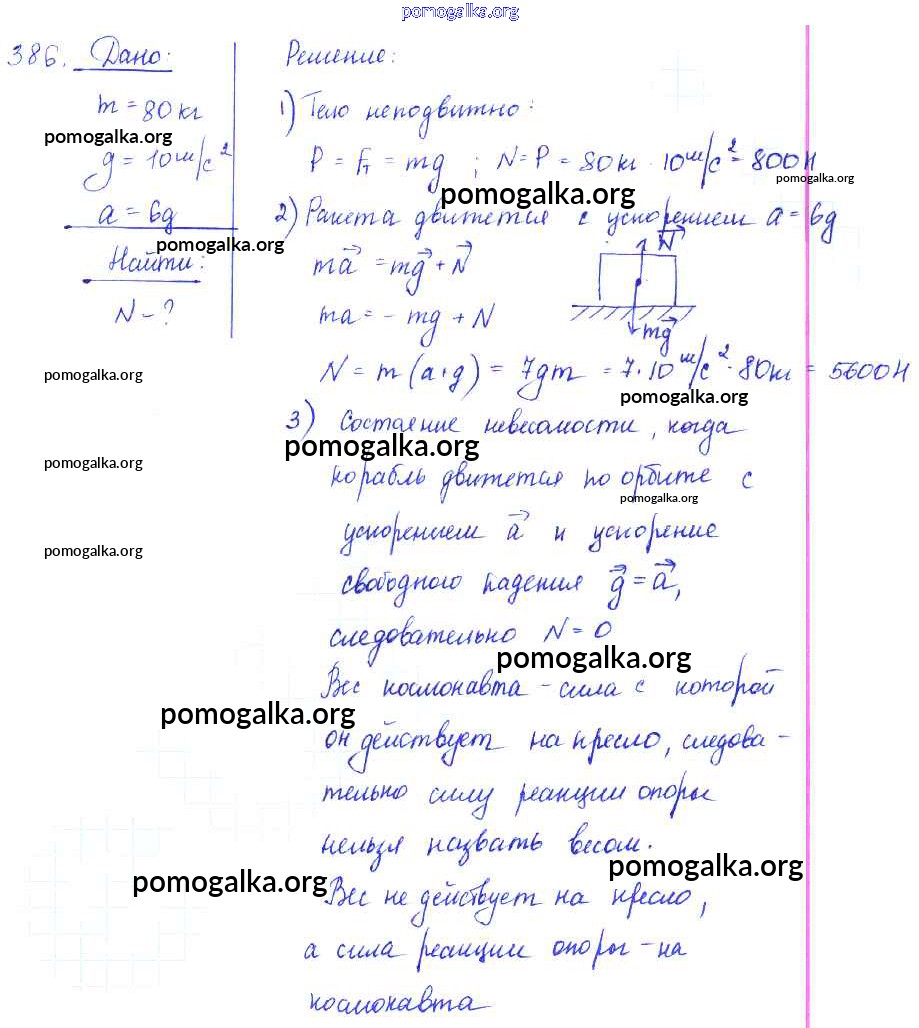 pomogalka.org
386. Дано:
Решение:
m = 80 кг
1) Тело неподвижно:
pomogalka.org
g = 10 м/с²
P = Fт = mg ; N = P = 80 кг · 10 м/с² = 800 Н
pomogalka.org
pomogalka.org
a = 6g
2) Ракета движется с ускорением a = 6g
pomogalka.org
Найти:
ma⃗ = mg⃗ + N⃗
N⃗
N - ?
ma = - mg + N
mg⃗
N = m (a+g) = 7gm = 7·10 м/с² · 80 кг = 5600 Н
pomogalka.org
pomogalka.org
3) Состояние невесомости, когда
pomogalka.org
pomogalka.org
корабль движется по орбите с
pomogalka.org
ускорением a⃗ и ускорение
pomogalka.org
свободного падения g⃗ = a⃗,
следовательно N = 0
pomogalka.org
Вес космонавта - сила с которой
pomogalka.org
он действует на кресло, следова-
тельно силу реакции опоры
нельзя назвать весом.
pomogalka.org
pomogalka.org
Вес не действует на кресло,
а сила реакции опоры - на
космонавта